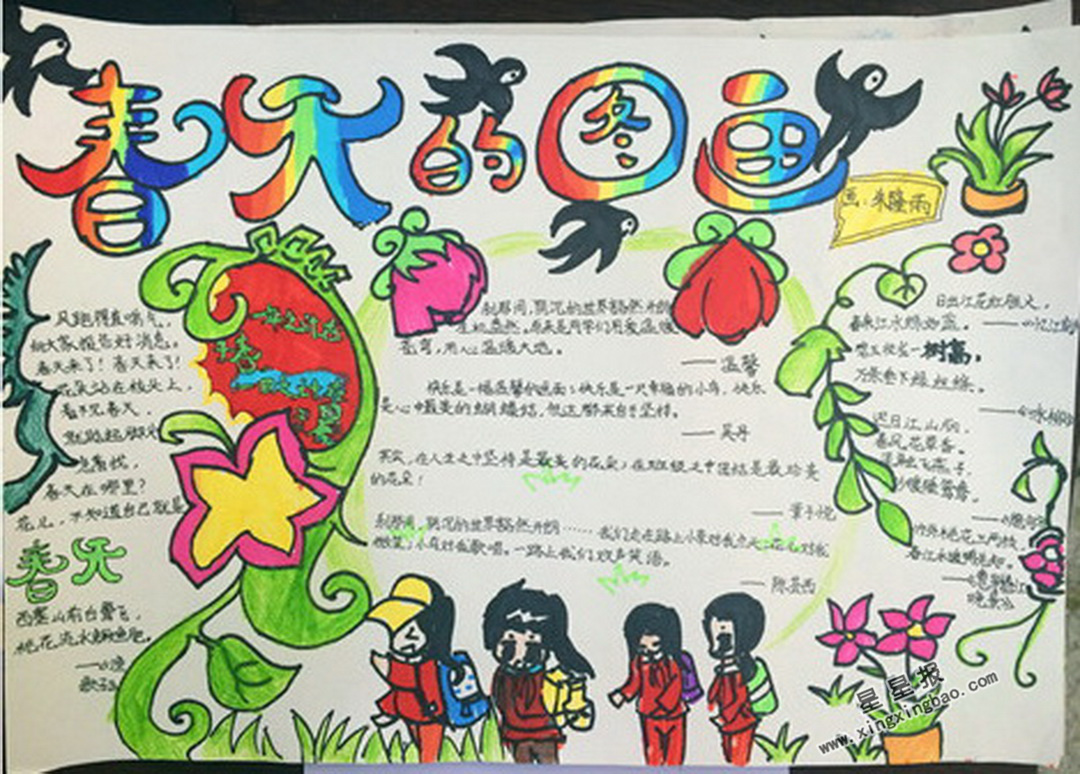 春天的图画
画:朱隆雨
风跑得直喘气,
向大家报告好消息。
春天来了!春天来了!
花朵站在枝头上,
看不见春天,
就踮起脚尖
急着找,
春天在哪里?
花儿,不知道自己就是
春天
西塞山前白鹭飞,
桃花流水鳜鱼肥。
——《渔
歌子》
一年之计在
于春
一日之计在
刹那间,阴沉的世界豁然开朗
苍穹,用心温暖大地。
——温馨
快乐是一幅温馨的画面;快乐是一只幸福的小鸟,快乐
是心中最美的蝴蝶结,但这都来自于坚持。
——吴丹
其实,在人生之中坚持是最美的花朵;在班级之中团结是最珍美
的花朵!
——章子悦
刹那间,阴沉的世界豁然开朗……我们走在路上小草对我点头,花儿对我
微笑,小鸟对我歌唱。一路上我们欢声笑语。
——陈芸西
日出江花红胜火,
春来江水绿如蓝。
——《忆江南
碧玉妆成一树高,
万条垂下绿丝绦。
——《咏柳》
迟日江山丽,
春风花草香。
泥融飞燕子,
沙暖睡鸳鸯。
——《绝句
竹外桃花三两枝,
春江水暖鸭先知。
——《惠崇春江
晚景》
星星报
www.xingxingbao.com